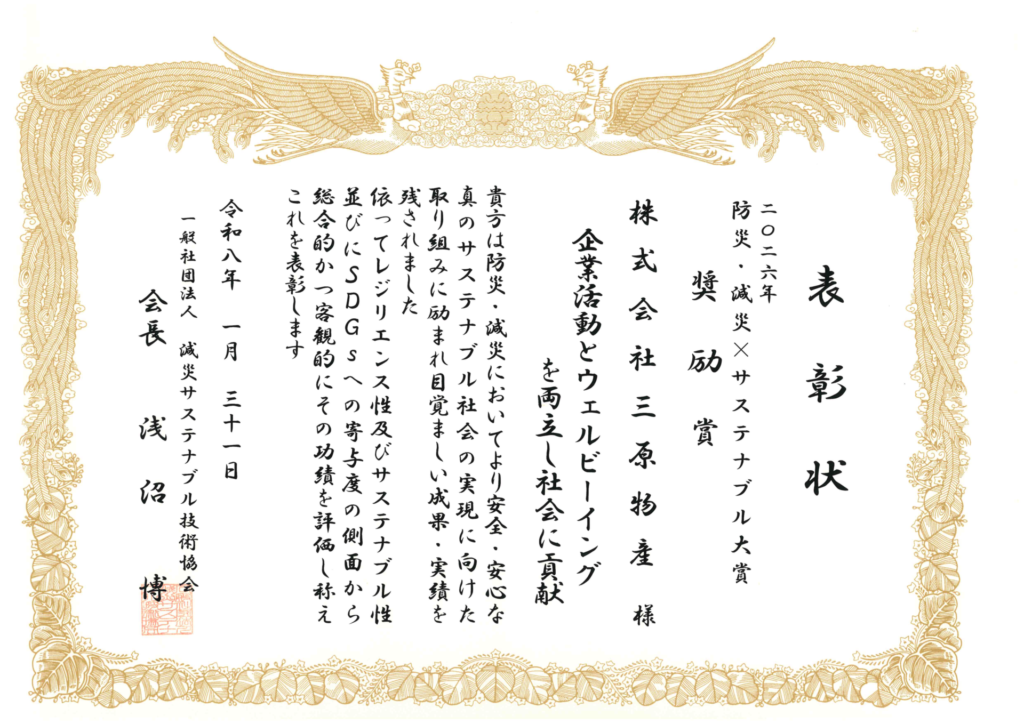 表彰状
二〇二六年
防災・減災×サステナブル大賞
奨励賞
株式会社三原物産 様
企業活動とウェルビーイング
を両立し社会に貢献
貴方は防災・減災においてより安全・安心な
真のサステナブル社会の実現に向けた
取り組みに励まれ目覚ましい成果・実績を
残されました
依ってレジリエンス性及びサステナブル性
並びにSDGsへの寄与度の側面から
総合的かつ客観的にその功績を評価し称え
これを表彰します
令和八年 一月 三十一日
一般社団法人 減災サステナブル技術協会
会長 浅沼 博